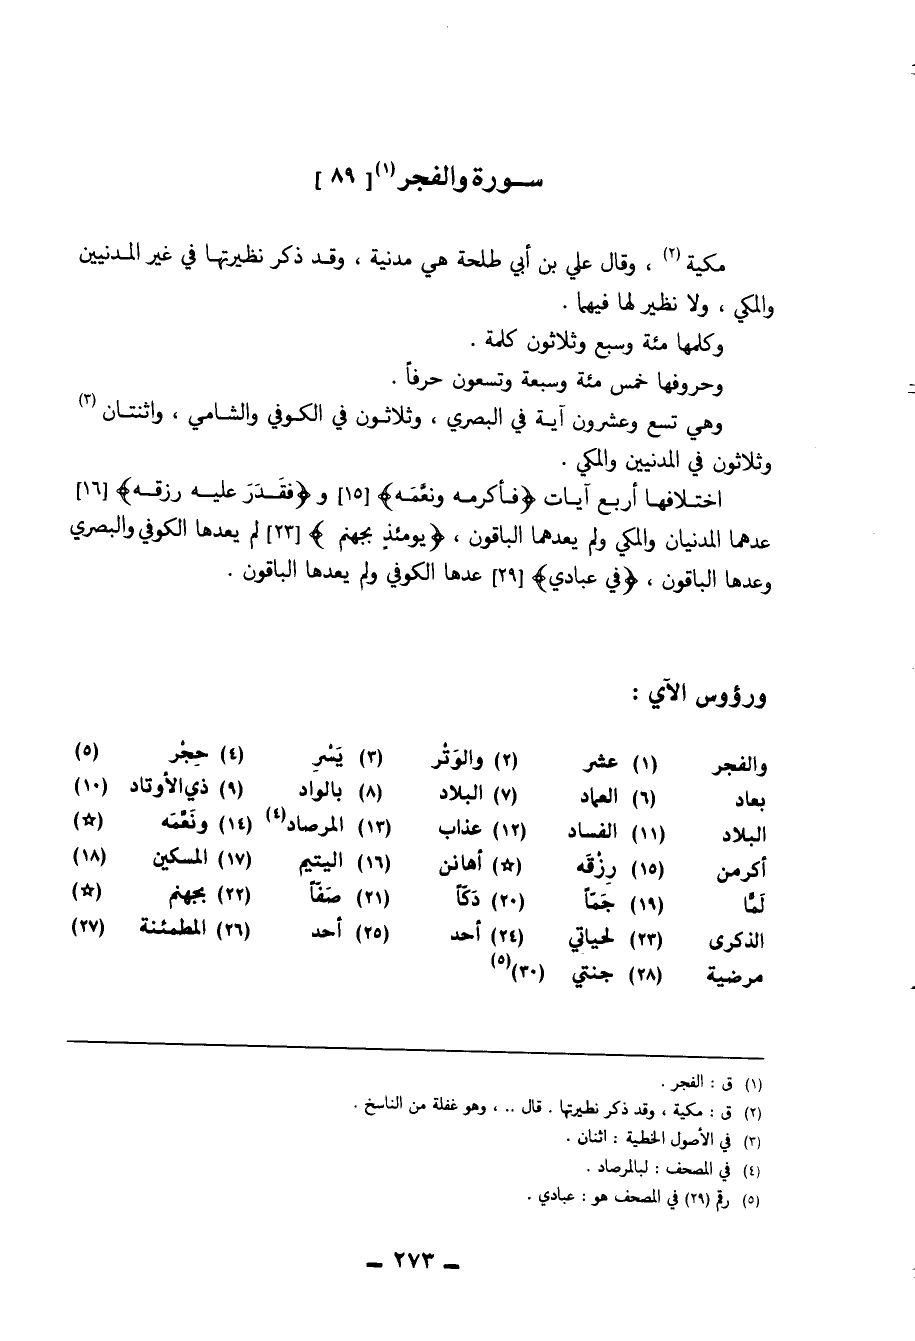 سورة والفجر(١) [ ٨٩ ]
مكية(٢) ، وقال علي بن أبي طلحة هي مدنية ، وقد ذكر نظيرتها في غير المدنيين
والمكي ، ولا نظير لها فيهما .
وكلمها مئة وسبع وثلاثون كلمة .
وحروفها خمس مئة وسبعة وتسعون حرفاً .
وهي تسع وعشرون آية في البصري ، وثلاثون في الكوفي والشامي ، واثنتان(٣)
وثلاثون في المدنيين والمكي .
اختلافها أربع آيات ﴿فأكرمه ونعَّمَه﴾ [١٥] و ﴿فقَدَرَ عليه رزقه﴾ [١٦]
عدهما المدنيان والمكي ولم يعدهما الباقون ، ﴿يومئذٍ بجهنم ﴾ [٢٣] لم يعدها الكوفي والبصري
وعدها الباقون ، ﴿في عبادي﴾ [٢٩] عدها الكوفي ولم يعدها الباقون .
ورؤوس الآي :
والفجر (١) عشر (٢) والوَتْر (٣) يَسْرِ (٤) حِجْر (٥)
بعاد (٦) العماد (٧) البلاد (٨) بالواد (٩) ذي الأوتاد (١٠)
البلاد (١١) الفساد (١٢) عذاب (١٣) المرصاد(٤) (١٤) ونَعَّمَه (☆)
أكرمن (١٥) رِزْقَه (☆) أهانن (١٦) اليتيم (١٧) المسكين (١٨)
لَمًّا (١٩) جَمّاً (٢٠) دَكّاً (٢١) صَفّاً (٢٢) بجهنم (☆)
الذكرى (٢٣) لحياتي (٢٤) أحد (٢٥) أحد (٢٦) المطمئنة (٢٧)
مرضية (٢٨) جنتي (٣٠)(٥)
(١) ق : الفجر .
(٢) ق : مكية ، وقد ذكر نظيرتها . قال .. ، وهو غفلة من الناسخ .
(٣) في الأصول الخطية : اثنان .
(٤) في المصحف : لبالمرصاد .
(٥) رقم (٢٩) في المصحف هو : عبادي .
ـ ٢٧٣ ـ